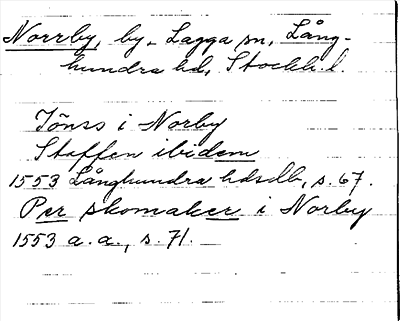 Norrby, by, Lagga sn, Lång-
hundra hd, Stockh. l.
Jönss i Norby
Staffen ibidem
1553 Långhundra hdsdb, s. 67.
Per skomaker i Norby
1553 a. a., s. 71.